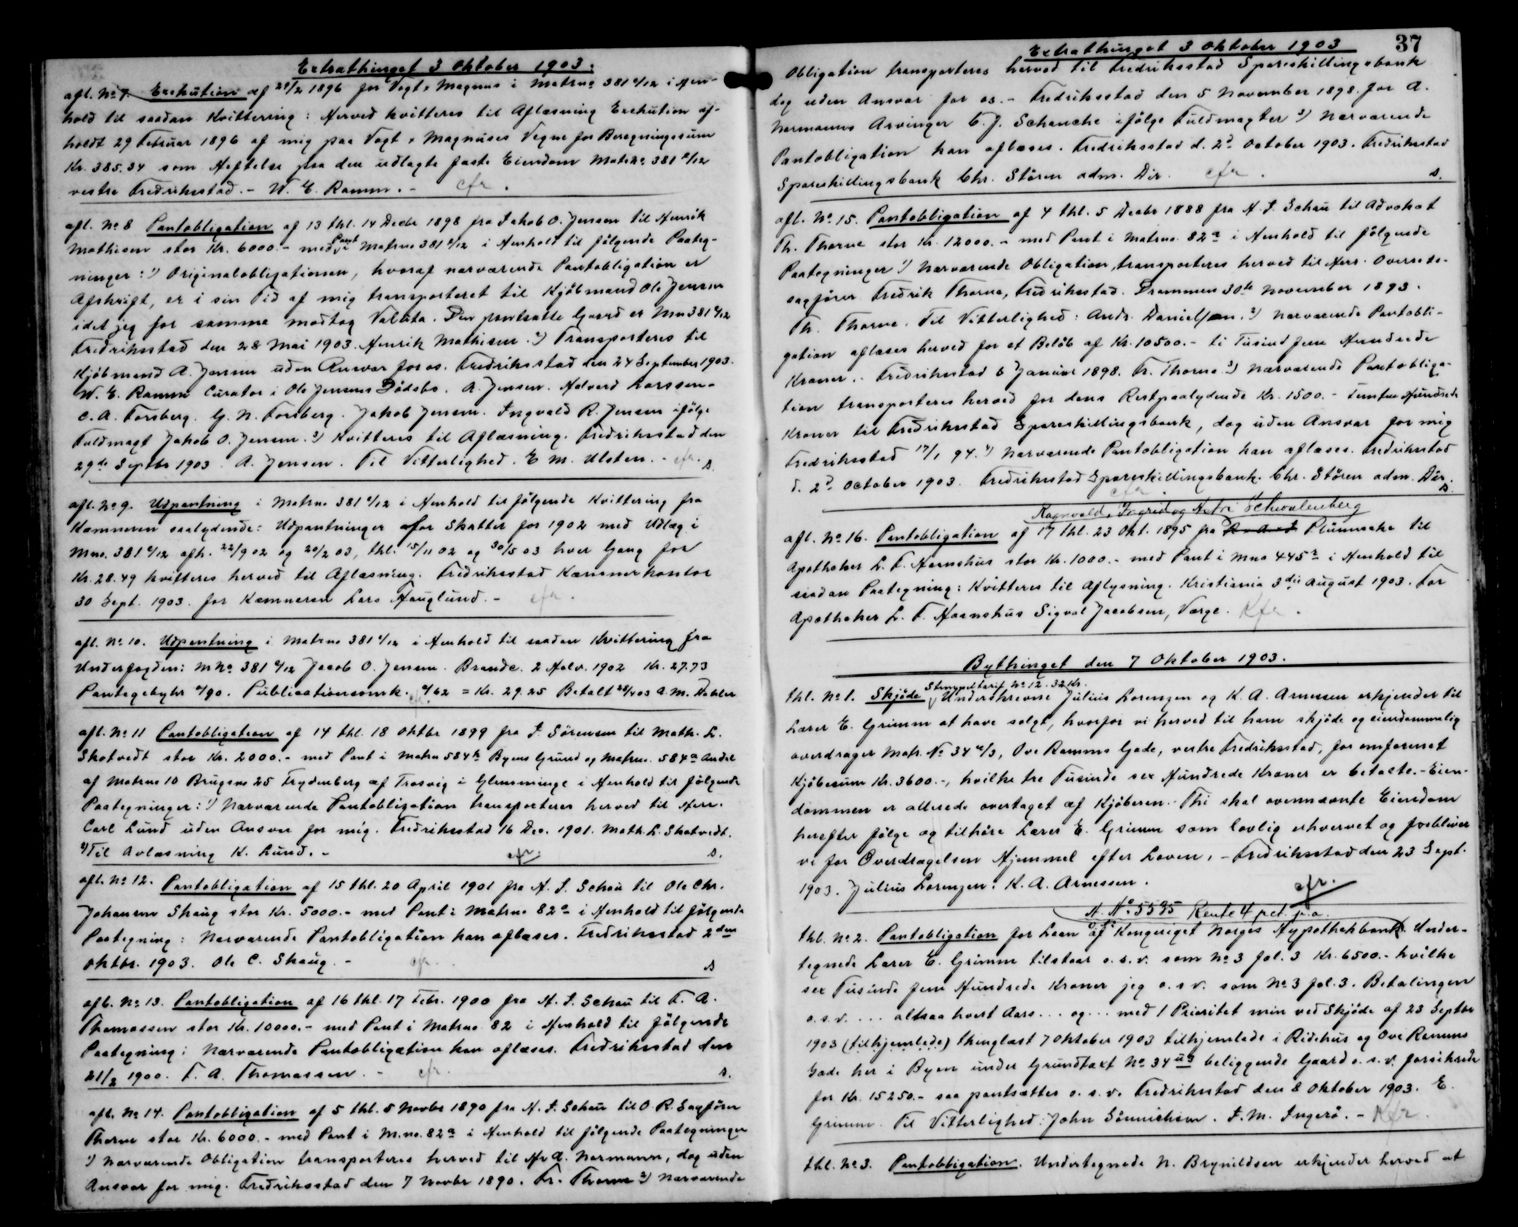 Extrathinget 3 Oktober 1903.
afl. No 7. Exekution af 29/2 1896 for Vogt, Magnus i Matrno 381 a/12 i Hen-
hold til saadan Kvittering: Herved kvitteres til Aflæsning Exekution af-
holdt 29 Februar 1896 af mig paa Vogt, Magnuses Vegne for Beregningssum
Kr. 385.34 som Heftelse paa den udlagte faste Eiendom Matrno. 381 a/12
vestre Fredriksstad. - W. E. Ramm. - cfr.
afl. No 8 Pantobligation af 13 thl. 14 Decbr 1898 fra Jakob O. Jensen til Henrik
Mathisen stor Kr. 6000.- med Pant i Matrno 381 a/12 i Henhold til følgende Paateg-
ninger: 1) Originalobligationen, hvoraf nærværende Pantobligation er
Afskrift, er i sin Tid af mig transporteret til Kjøbmand Ole Jensen
idet jeg for samme modtog Valuta. Den pantsatte Gaard er Mno 381 a/12
Fredriksstad den 28 Mai 1903. Henrik Mathisen. 2) Transporteres til
Kjøbmand A. Jensen uden Ansvar for os. Fredriksstad den 24 September 1903.
W. E. Ramm Curator i Ole Jensens Dødsbo. A. Jensen. Halvard Larssen.
C. A. Forsberg. G. N. Forsberg. Jakob Jensen. Ingvald R. Jensen ifølge
Fuldmagt Jakob O. Jensen. 3) Kvitteres til Aflæsning. Fredriksstad den
29de Septbr 1903. A. Jensen. Til Vitterlighed. E. M. Ulsten. - cfr. s.
afl. No 9. Udpantning i Matrno 381 a/12 i Henhold til følgende Kvittering fra
Kæmneren saalydende: Udpantninger for Skatter for 1902 med Udlæg i
Mno. 381 a/12 afh. 22/9 02 og 20/2 03, thl. 15/11 02 og 30/5 03 hver Gang for
Kr. 28.49 kvitteres herved til Aflæsning. Fredriksstad Kæmnerkontor
30 Sept. 1903. for Kæmneren Lars Hauglund. - cfr.
afl. No 10. Udpantning i Matrno 381 a/12 i Henhold til saadan Kvittering fra
Underfogden: MNo. 381 a/12 Jacob O. Jensen. Brandc. 2 Halv. 1902 Kr. 27.73
Pantegebyhr "/90. Publicationsomk. "/62 = Kr. 29.25 Betalt 1903 A. M.
afl. No 11 Pantobligation af 14 thl. 18 Oktbr 1899 fra J. Sørensen til Math. L.
Skotvedt stor Kr. 2000.- med Pant i Matrno 584b Byens Grund og Matrno. 584a Andel
af Matrno 10 Brugsno 25 Trydenberg af Trosvig i Glemminge i Henhold til følgende
Paategninger: 1) Nærværende Pantobligation transporteres herved til Herr.
Carl Lund uden Ansvar for mig. Fredriksstad 16 Dec. 1901. Math. L. Skotvedt.
2) Til Avlæsning K. Lund. - cfr. s.
afl. No 12. Pantobligation af 15 thl. 20 April 1901 fra H. J. Schou til Ole Chr.
Johansen Skaug stor Kr. 5000.- med Pant i Matrno 82a i Henhold til følgende
Paategning: Nærværende Pantobligation kan aflæses. Fredriksstad 2den
Oktbr. 1903. Ole C. Skaug. - cfr. s
afl. No 13. Pantobligation af 16 thl. 17 Febr. 1900 fra H. J. Schou til T. A.
Thomassen stor Kr. 10000.- med Pant i Matrno 82 i Henhold til følgende
Paategning: Nærværende Pantobligation kan aflæses. Fredriksstad den
21/2 1900. T. A. Thomassen. - cfr. s.
afl. No 14. Pantobligation af 5 thl. 5 Novbr 1890 fra H. J. Schou til O. R. Sagfører
Thorne stor Kr. 6000.- med Pant i M.no. 82a i Henhold til følgende Paategninger
1) Nærværende Obligation transporteres herved til Hr A. Normann, dog uden
Ansvar for mig. Fredriksstad den 7 Novbr 1890. Fr. Thorne 2) Nærværende
Extrathinget 3 Oktober 1903 37
Obligation transporteres herved til Fredriksstad Spareskillingsbank
dog uden Ansvar for os. - Fredriksstad den 5 November 1898. for A.
Normanns Arvinger C. J. Schancke ifølge Fuldmagter 3) Nærværende
Pantobligation kan aflæses. Fredriksstad d. 2d October 1903. Fredriksstad
Spareskillingsbank Chr. Støren adm. Dir. cfr. s.
afl. No. 15. Pantobligation af 4 thl. 5 Decbr 1888 fra H. J. Schou til Advokat
Th. Thorne stor Kr. 12000.- med Pant i Matrno. 82a i Henhold til følgende
Paategninger 1) Nærværende Obligation, transporteres herved til Herr Overrets-
sagfører Fredrik Thorne, Fredriksstad. Drammen 30te November 1893.
Th. Thorne. Til Vitterlighed: Andr. Danielsen. 2) Nærværende Pantobli-
gation aflæses herved for et Beløb af Kr. 10500.- ti Tusind fem Hundrede
Kroner.. Fredriksstad 6 Januar 1898. Fr. Thorne 3) Nærværende Pantobliga-
tion transporteres herved for dens Restpaalydende Kr. 1500.- Femten Hundrede
Kroner til Fredriksstad Spareskillingsbank, dog uden Ansvar for mig
Fredriksstad 17/1 94. 4) Nærværende Pantobligation kan aflæses. Fredriksstad
d. 2d October 1903. Fredriksstad Spareskillingsbank. Chr. Støren adm. Dir.
cfr. s.
Ragnvald, Ingrid og Petri Schwalenberg
afl. No 16. Pantobligation af 17 thl. 23 Okt. 1895 fra Plünnecke til
Apotheker L. T. Harnehus stor Kr. 1000.- med Pant i Mno 445a i Henhold til
saadan Paategning: Kvitteres til Aflysning. Kristiania 3die August 1903. For
Apotheker L. T. Harnehus Sigval Jacobsen, Værge. Kfr.
Bythinget den 7 Oktober 1903.
thl. No 1. Skjøde Stempeltarif No 12. 32 Kr. Underskrevne Julius Lorenzen og K. A. Arnesen erkjender til
Lærer E. Grimm at have solgt, hvorfor vi herved til ham skjøde og eiendommelig
overdrager Matr. No 34 u/3, Ove Ramms Gade, vestre Fredriksstad, for omforenet
Kjøbesum Kr. 3600.-, hvilke tre Tusinde sex Hundrede Kroner er betalte. - Eien-
dommen er allerede overtaget af Kjøberen. Thi skal ovennævnte Eiendom
herefter følge og tilhøre Lærer E. Grimm som lovlig erhvervet og forbliver
vi for Overdragelsen Hjemmel efter Loven. - Fredriksstad den 23 Sept.
1903. Julius Lorenzen. K. A. Arnesen. cfr.
A. No 5595 Rente 4 pct. p.a.
thl. No 2. Pantobligation for Laan af Kongeriget Norges Hypothekbank. Under-
tegnede Lærer E. Grimm tilstaar o.s.v. som No 3 fol. 3 Kr. 6500.- hvilke
sex Tusinde fem Hundrede Kroner jeg o.s.v. som No 3 fol. 3. Betalingen
o.s.v. ... altsaa hvert Aars ... og ... med 1 Prioritet min ved Skjøde af 23 Septbr
1903 (tilhjemlede) thinglæst 7 Oktober 1903 tilhjemlede i Ridehus og Ove Ramms
Gade her i Byen under Grundtaxt No. 34 u/3 beliggende Gaard o.s.v. forsikrede
for Kr. 15250.- saa pantsætter o.s.v. Fredriksstad den 8 Oktober 1903. E.
Grimm. Til Vitterlighed: John Sönnichsen. F. M. Ingerø. - Kfr.
thl. No 3. Pantobligation. Undertegnede N. Brynildsen erkjender herved at